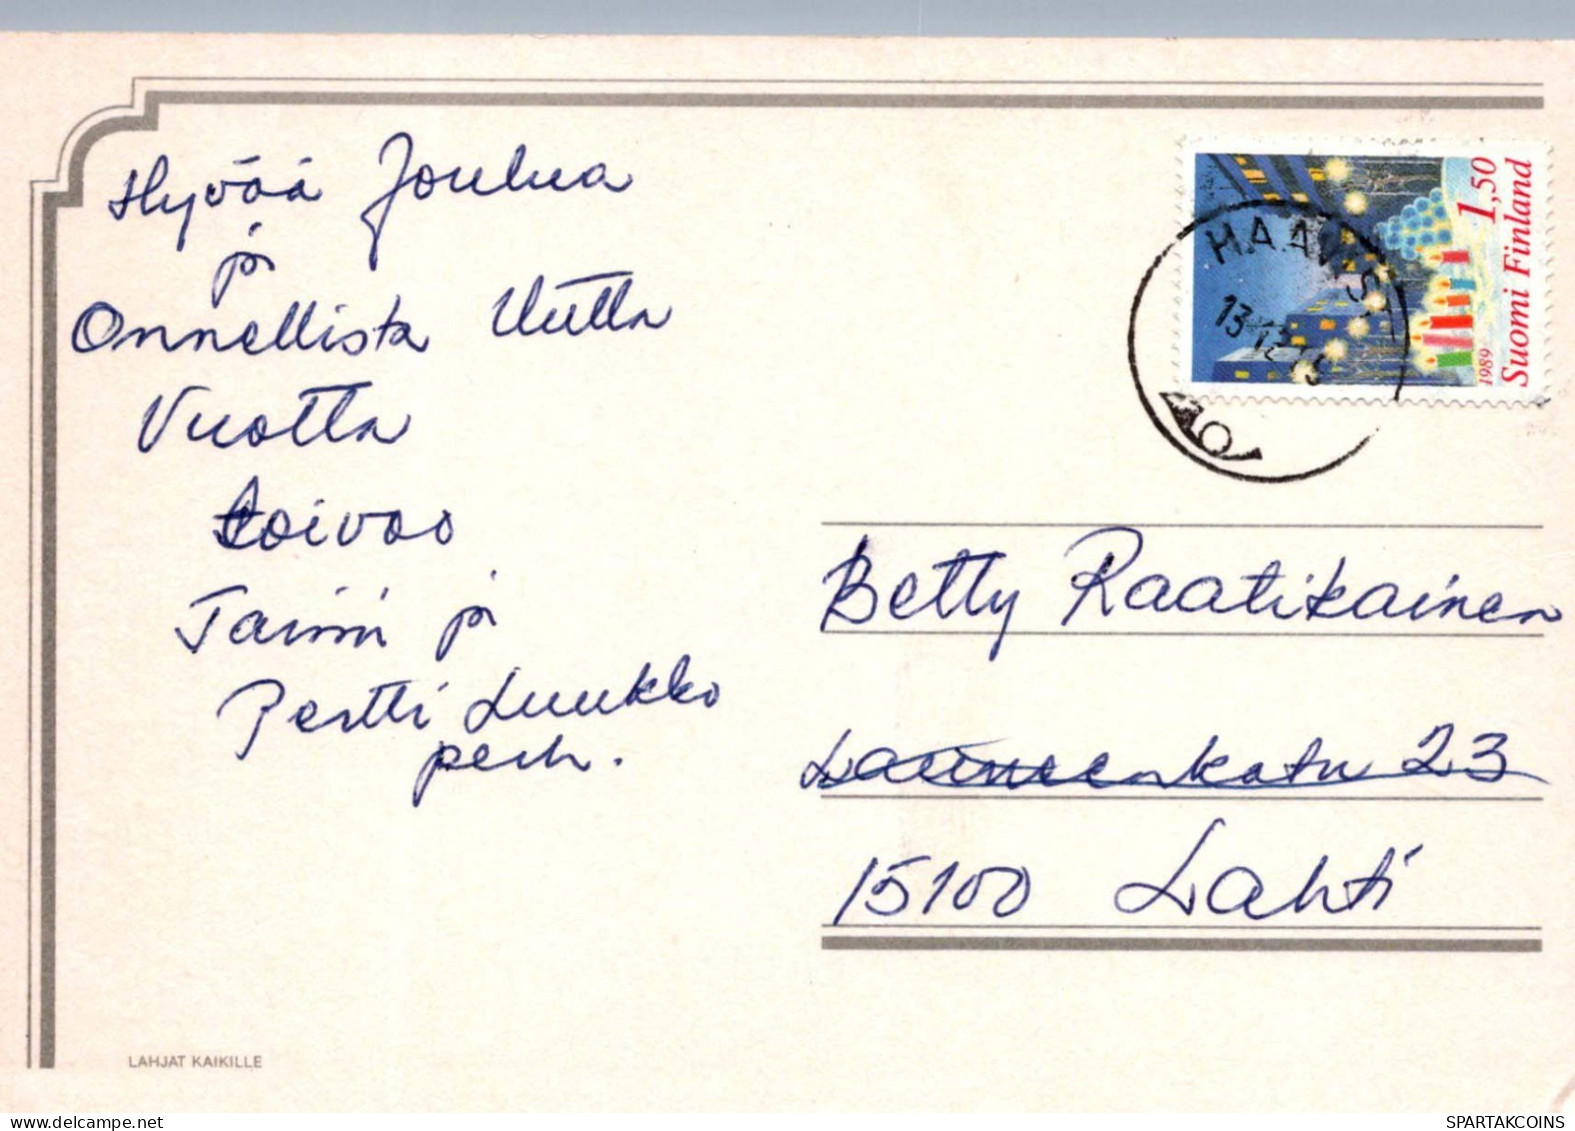 Hyvää Joulua
ja
Onnellista Uutta
Vuotta
toivoo
Taimi ja
Pertti Luukko
perh.
LAHJAT KAIKILLE
1,50
Suomi Finland
1989
13.12
Betty Raatikainen
Launeenkatu 23
15100 Lahti
SPARTAKCOINS